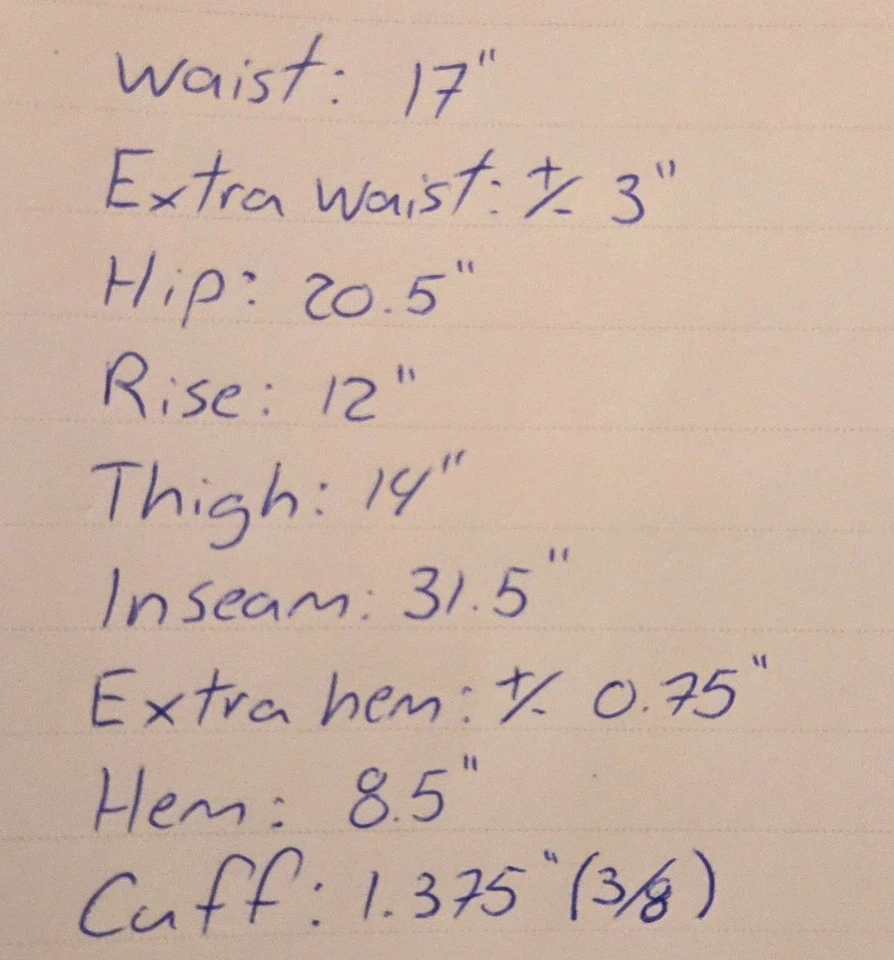 Waist: 17"
Extra waist: +/- 3"
Hip: 20.5"
Rise: 12"
Thigh: 14"
Inseam: 31.5"
Extra hem: +/- 0.75"
Hem: 8.5"
Cuff: 1.375" (3/8)